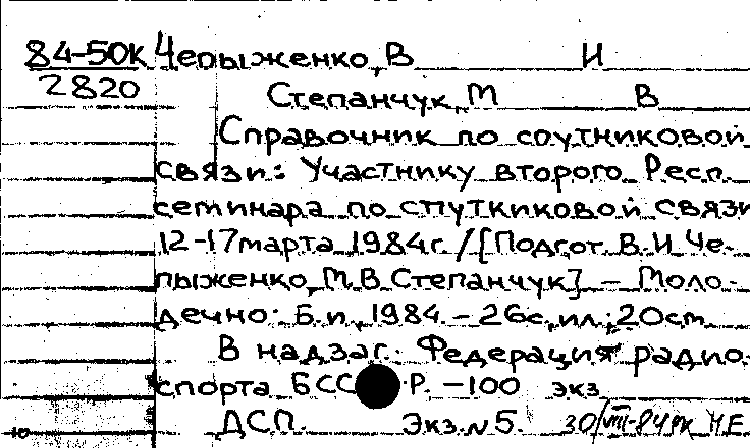 84-50К Чепыженко, В И
2820
Степанчук, М В
Справочник по спутниковой
связи: Участнику второго Респ.
семинара по спуткиковой связи
12-17 марта 1984г. / [Подгот. В.И. Че-
пыженко, М.В. Степанчук]. — Моло-
дечно: Б.и., 1984. — 26с., ил.; 20см
В надзаг.: Федерация радио-
спорта БССР. — 100 экз.
ДСП. Экз. N 5. 30/VIII-84